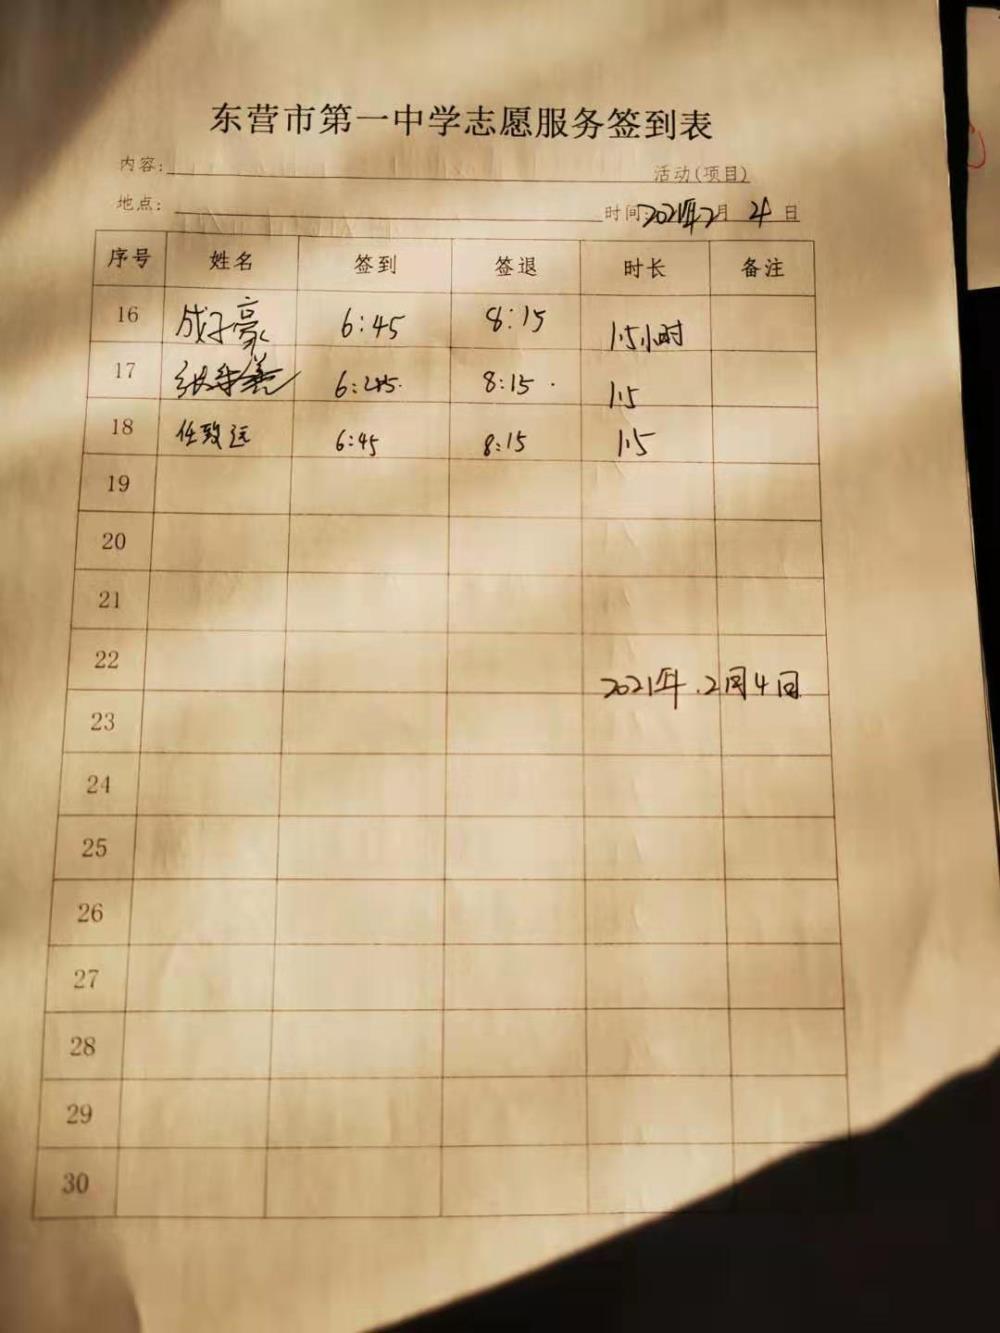 东营市第一中学志愿服务签到表
内容: 活动(项目)
地点: 时间:2021年2月 4 日
序号 姓名 签到 签退 时长 备注
16 成子豪 6:45 8:15 1.5小时
17 6:45 8:15 1.5
18 任致远 6:45 8:15 1.5
19
20
21
22
2021年.2月4日
23
24
25
26
27
28
29
30